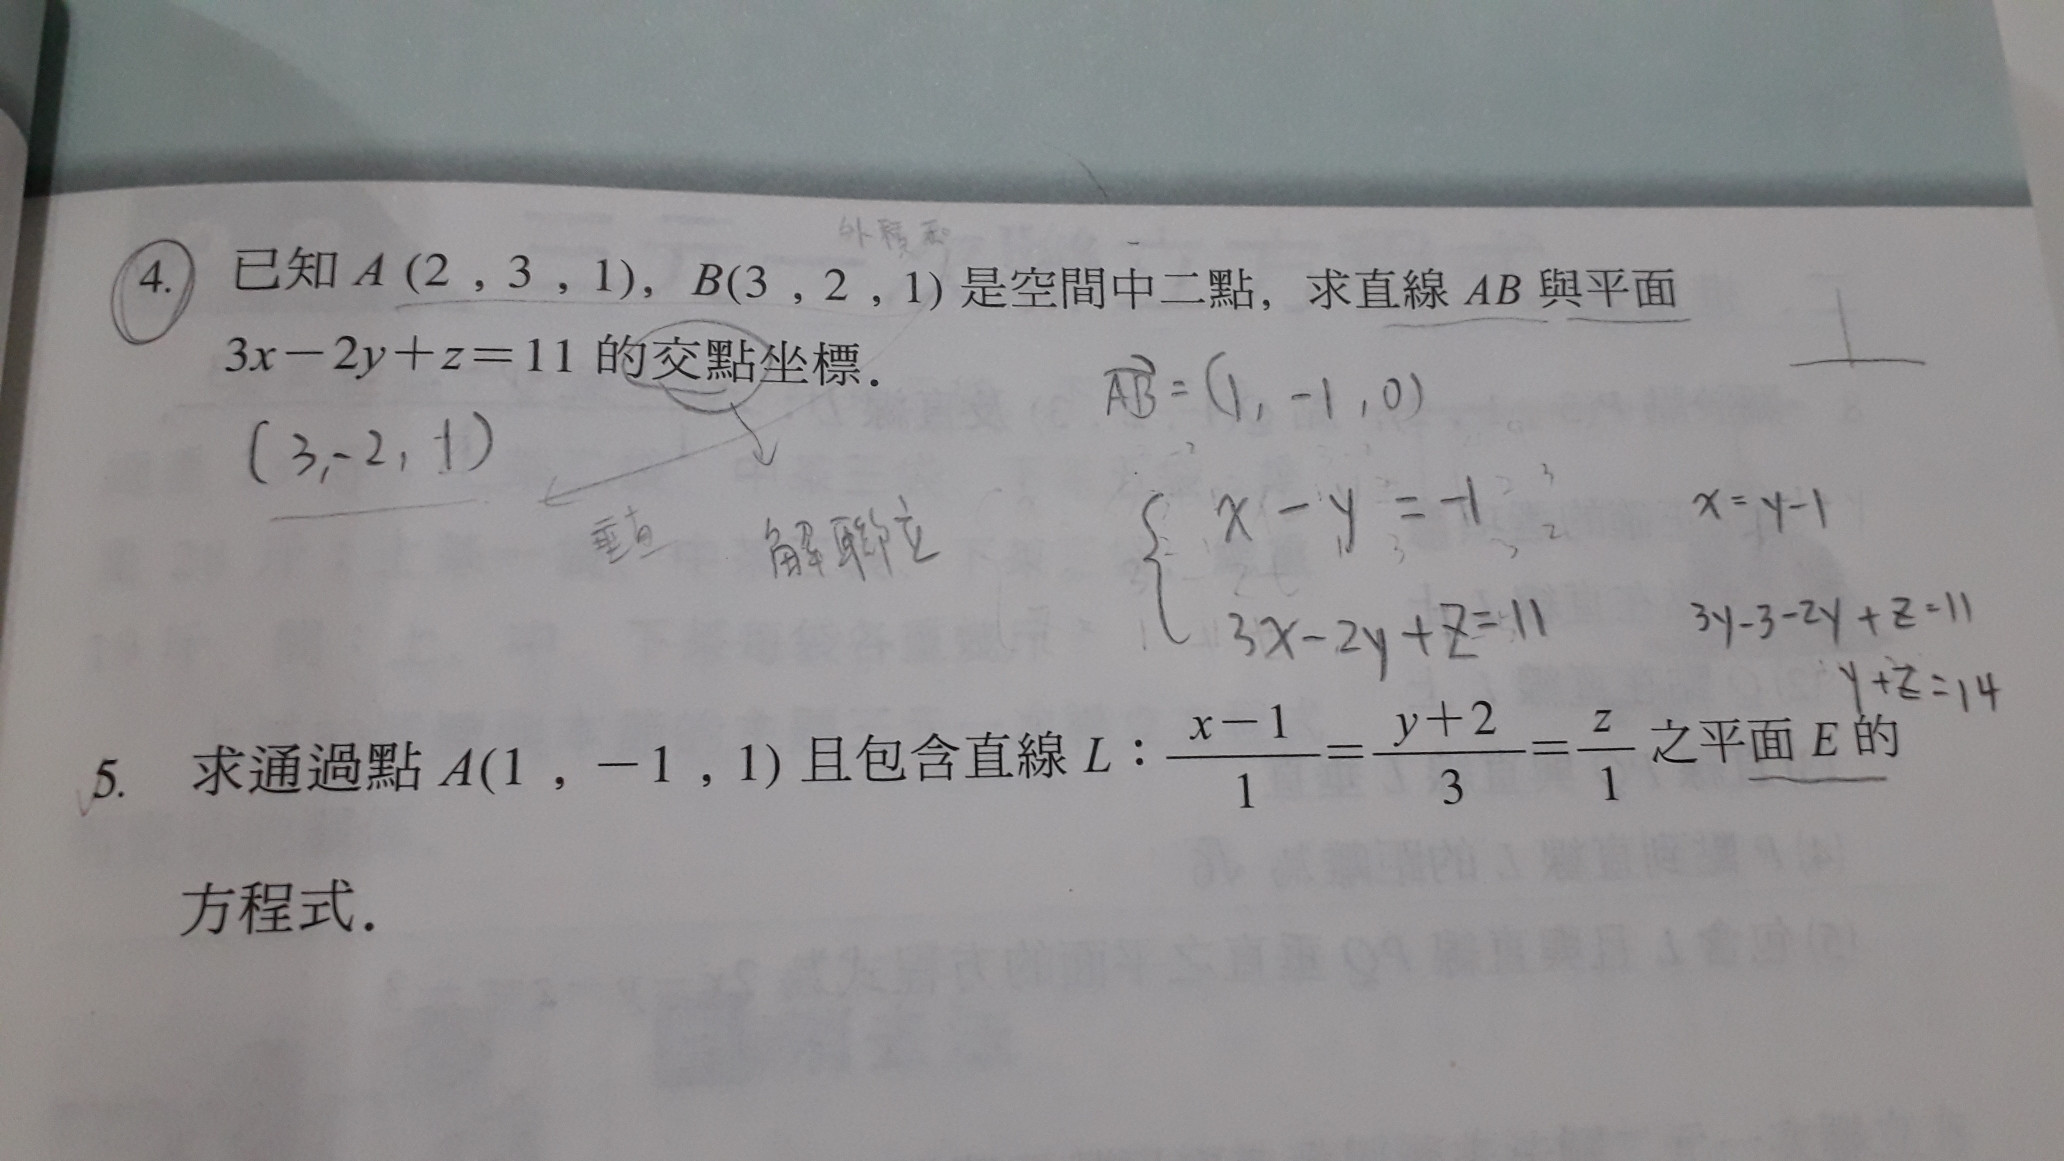 外積
4. 已知 A (2 , 3 , 1), B(3 , 2 , 1) 是空間中二點, 求直線 AB 與平面
3x－2y＋z＝11 的交點坐標.
AB = (1, -1, 0)
(3, -2, 1)
垂直
解聯立
x - y = -1
x = y-1
3x-2y+z=11
3y-3-2y+z=11
y+z=14
5. 求通過點 A(1 , －1 , 1) 且包含直線 L：x－1/1＝y＋2/3＝z/1 之平面 E 的
方程式.